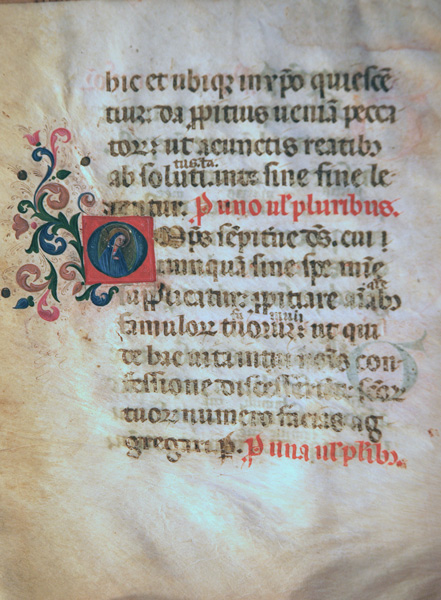 hic et ubiqꝫ in xp̄o quiescē
tiuꝫ: da ꝓpitius ueniā pecca
toꝝ: ut a cunctis reatibꝫ
tus. ta.
ab soluti. tecū sine fine le
tentur. P uno ul̓ pluribus.
Mp̄s sēpitne ds̄. cui
nunquā sine spe mīe
supplicatur: ꝓpitiare aīabꝫ
famuloꝝ tuoꝝ: ut qui
de hac uita in tui noīs con
fessione discesserūt: scōꝝ
tuoꝝ numero facias ag
gregari. p. P una ul̓ plibꝫ.